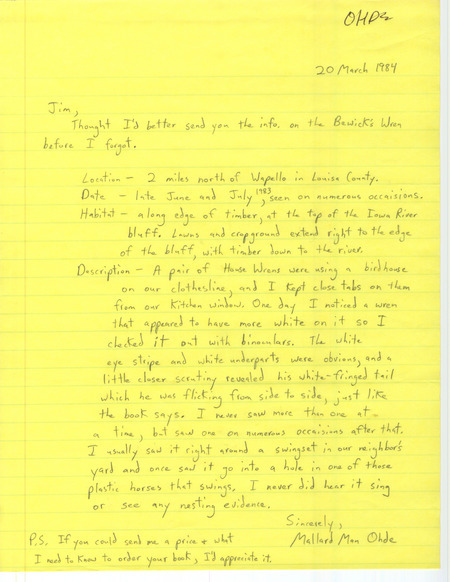 OHDE
20 March 1984
Jim,
Thought I'd better send you the info. on the Bewick's Wren
before I forgot.
Location - 2 miles north of Wapello in Louisa County.
Date - late June and July 1983, seen on numerous occaisions.
Habitat - along edge of timber, at the top of the Iowa River
bluff. Lawns and cropground extend right to the edge
of the bluff, with timber down to the river.
Description - A pair of House Wrens were using a birdhouse
on our clothesline, and I kept close tabs on them
from our kitchen window. One day I noticed a wren
that appeared to have more white on it so I
checked it out with binoculars. The white
eye stripe and white underparts were obvious, and a
little closer scrutiny revealed his white-fringed tail
which he was flicking from side to side, just like
the book says. I never saw more then one at
a time, but saw one on numerous occaisions after that.
I usually saw it right around a swingset in our neighbor's
yard and once saw it go into a hole in one of those
plastic horses that swings. I never did hear it sing
or see any nesting evidence.
Sincerely,
Mallard Man Ohde
P.S. If you could send me a price & what
I need to know to order your book, I'd appreciate it.